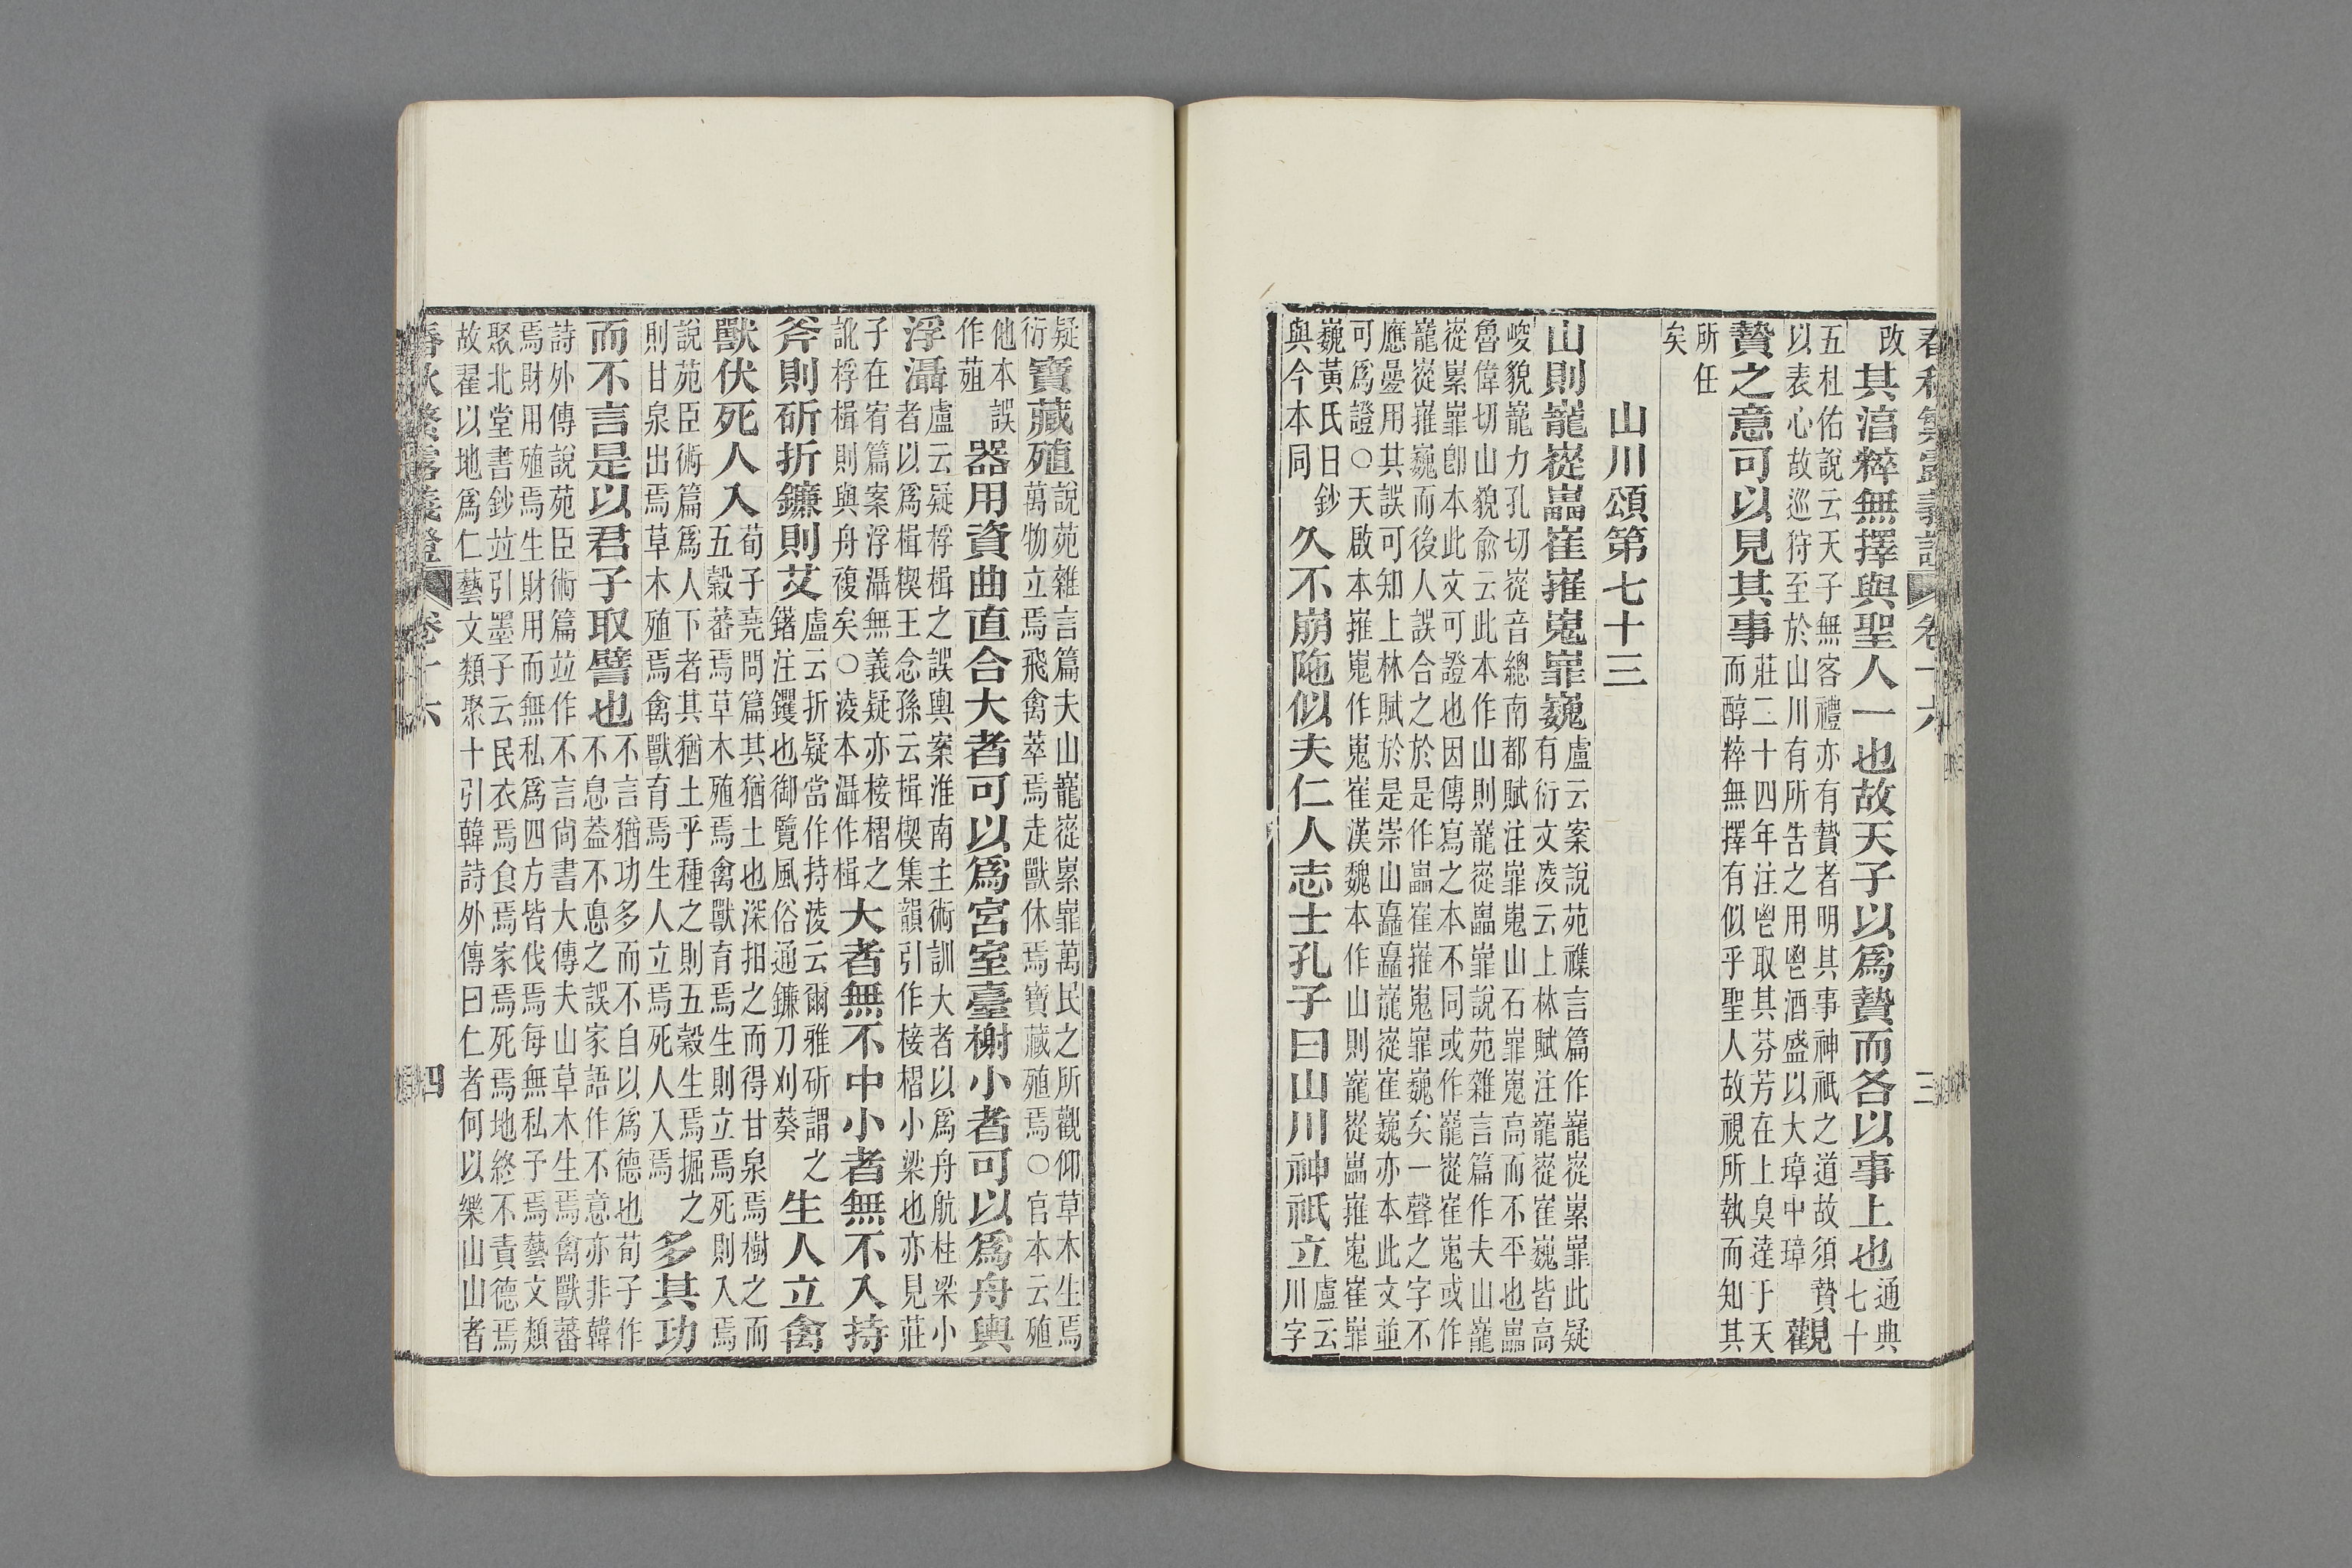 春秋繁露義證　卷十六　三
改其淯粹無擇與聖人一也故天子以爲贄而各以事上也通典
七十
五杜佑說云天子無客禮亦有贄者明其事神祇之道故須贄
以表心故巡狩至於山川有所告之用鬯酒盛以大璋中璋觀
贄之意可以見其事莊二十四年注鬯取其芬芳在上臭達于天
而醇粹無擇有似乎聖人故視所執而知其
所任
矣
山川頌第七十三
山則巃嵸㠥崔嶊嵬嶵巍盧云案說苑襍言篇作巃嵸累嶵此疑
有衍文凌云上林賦注巃嵸崔巍皆高
峻貌巃力孔切嵸音總南都賦注嶵嵬山石嶵嵬高而不平也㠥
魯偉切山貌兪云此本作山則巃嵸㠥嶵說苑雜言篇作夫山巃
嵸累嶵卽本此文可證也因傳寫之本不同或作巃嵸崔嵬或作
巃嵸嶊巍而後人誤合之於是作㠥崔嶊嵬嶵巍矣一聲之字不
應疊用其誤可知上林賦於是崇山矗矗巃嵸崔巍亦本此文並
可爲證○天啟本嶊嵬作嵬崔漢魏本作山則巃嵸㠥嶊嵬崔嶵
巍黃氏日鈔
與今本同久不崩陁似夫仁人志士孔子曰山川神祇立盧云
川字
疑
衍寶藏殖說苑雜言篇夫山巃嵸累嶵萬民之所觀仰草木生焉
萬物立焉飛禽萃焉走獸休焉寶藏殖焉○官本云殖
他本誤
作葅器用資曲直合大者可以爲宮室臺榭小者可以爲舟輿
浮灄盧云疑桴楫之誤輿案淮南主術訓大者以爲舟航柱梁小
者以爲楫楔王念孫云楫楔集韻引作椄槢小梁也亦見莊
子在宥篇案浮灄無義疑亦椄槢之
訛桴楫則與舟複矣○淩本灄作楫大者無不中小者無不入持
斧則斫折鐮則艾盧云折疑當作持淩云爾雅斫謂之
鐯注钁也御覽風俗通鐮刀刈葵生人立禽
獸伏死人入荀子堯問篇其猶土也深抇之而得甘泉焉樹之而
五穀蕃焉草木殖焉禽獸育焉生則立焉死則入焉
說苑臣術篇爲人下者其猶土乎種之則五穀生焉掘之
則甘泉出焉草木殖焉禽獸育焉生人立焉死人入焉多其功
而不言是以君子取譬也不言猶功多而不自以爲德也荀子作
不息葢不悳之誤家語作不意亦非韓
詩外傳說苑臣術篇竝作不言尙書大傳夫山草木生焉禽獸蕃
焉財用殖焉生財用而無私爲四方皆伐焉每無私予焉藝文類
聚北堂書鈔竝引墨子云民衣焉食焉家焉死焉地終不責德焉
故翟以地爲仁藝文類聚十引韓詩外傳曰仁者何以樂山山者
春秋繁露義證　卷十六　四